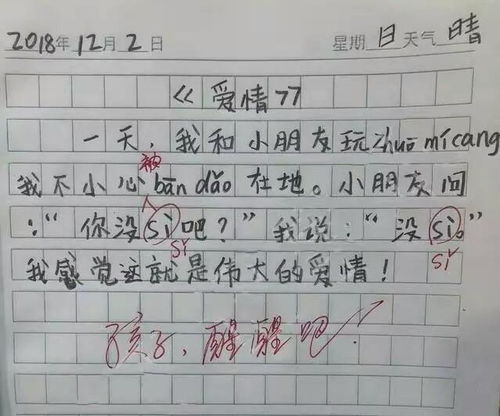 2018年12月2日 星期 日 天气 晴
《爱情》
一天，我和小朋友玩zhuō mí cang
被
我不小心bān dǎo在地。小朋友问
：“你没sì吧？”我说：“没sì。”
sǐ sǐ
我感觉这就是伟大的爱情！
孩子，醒醒吧！